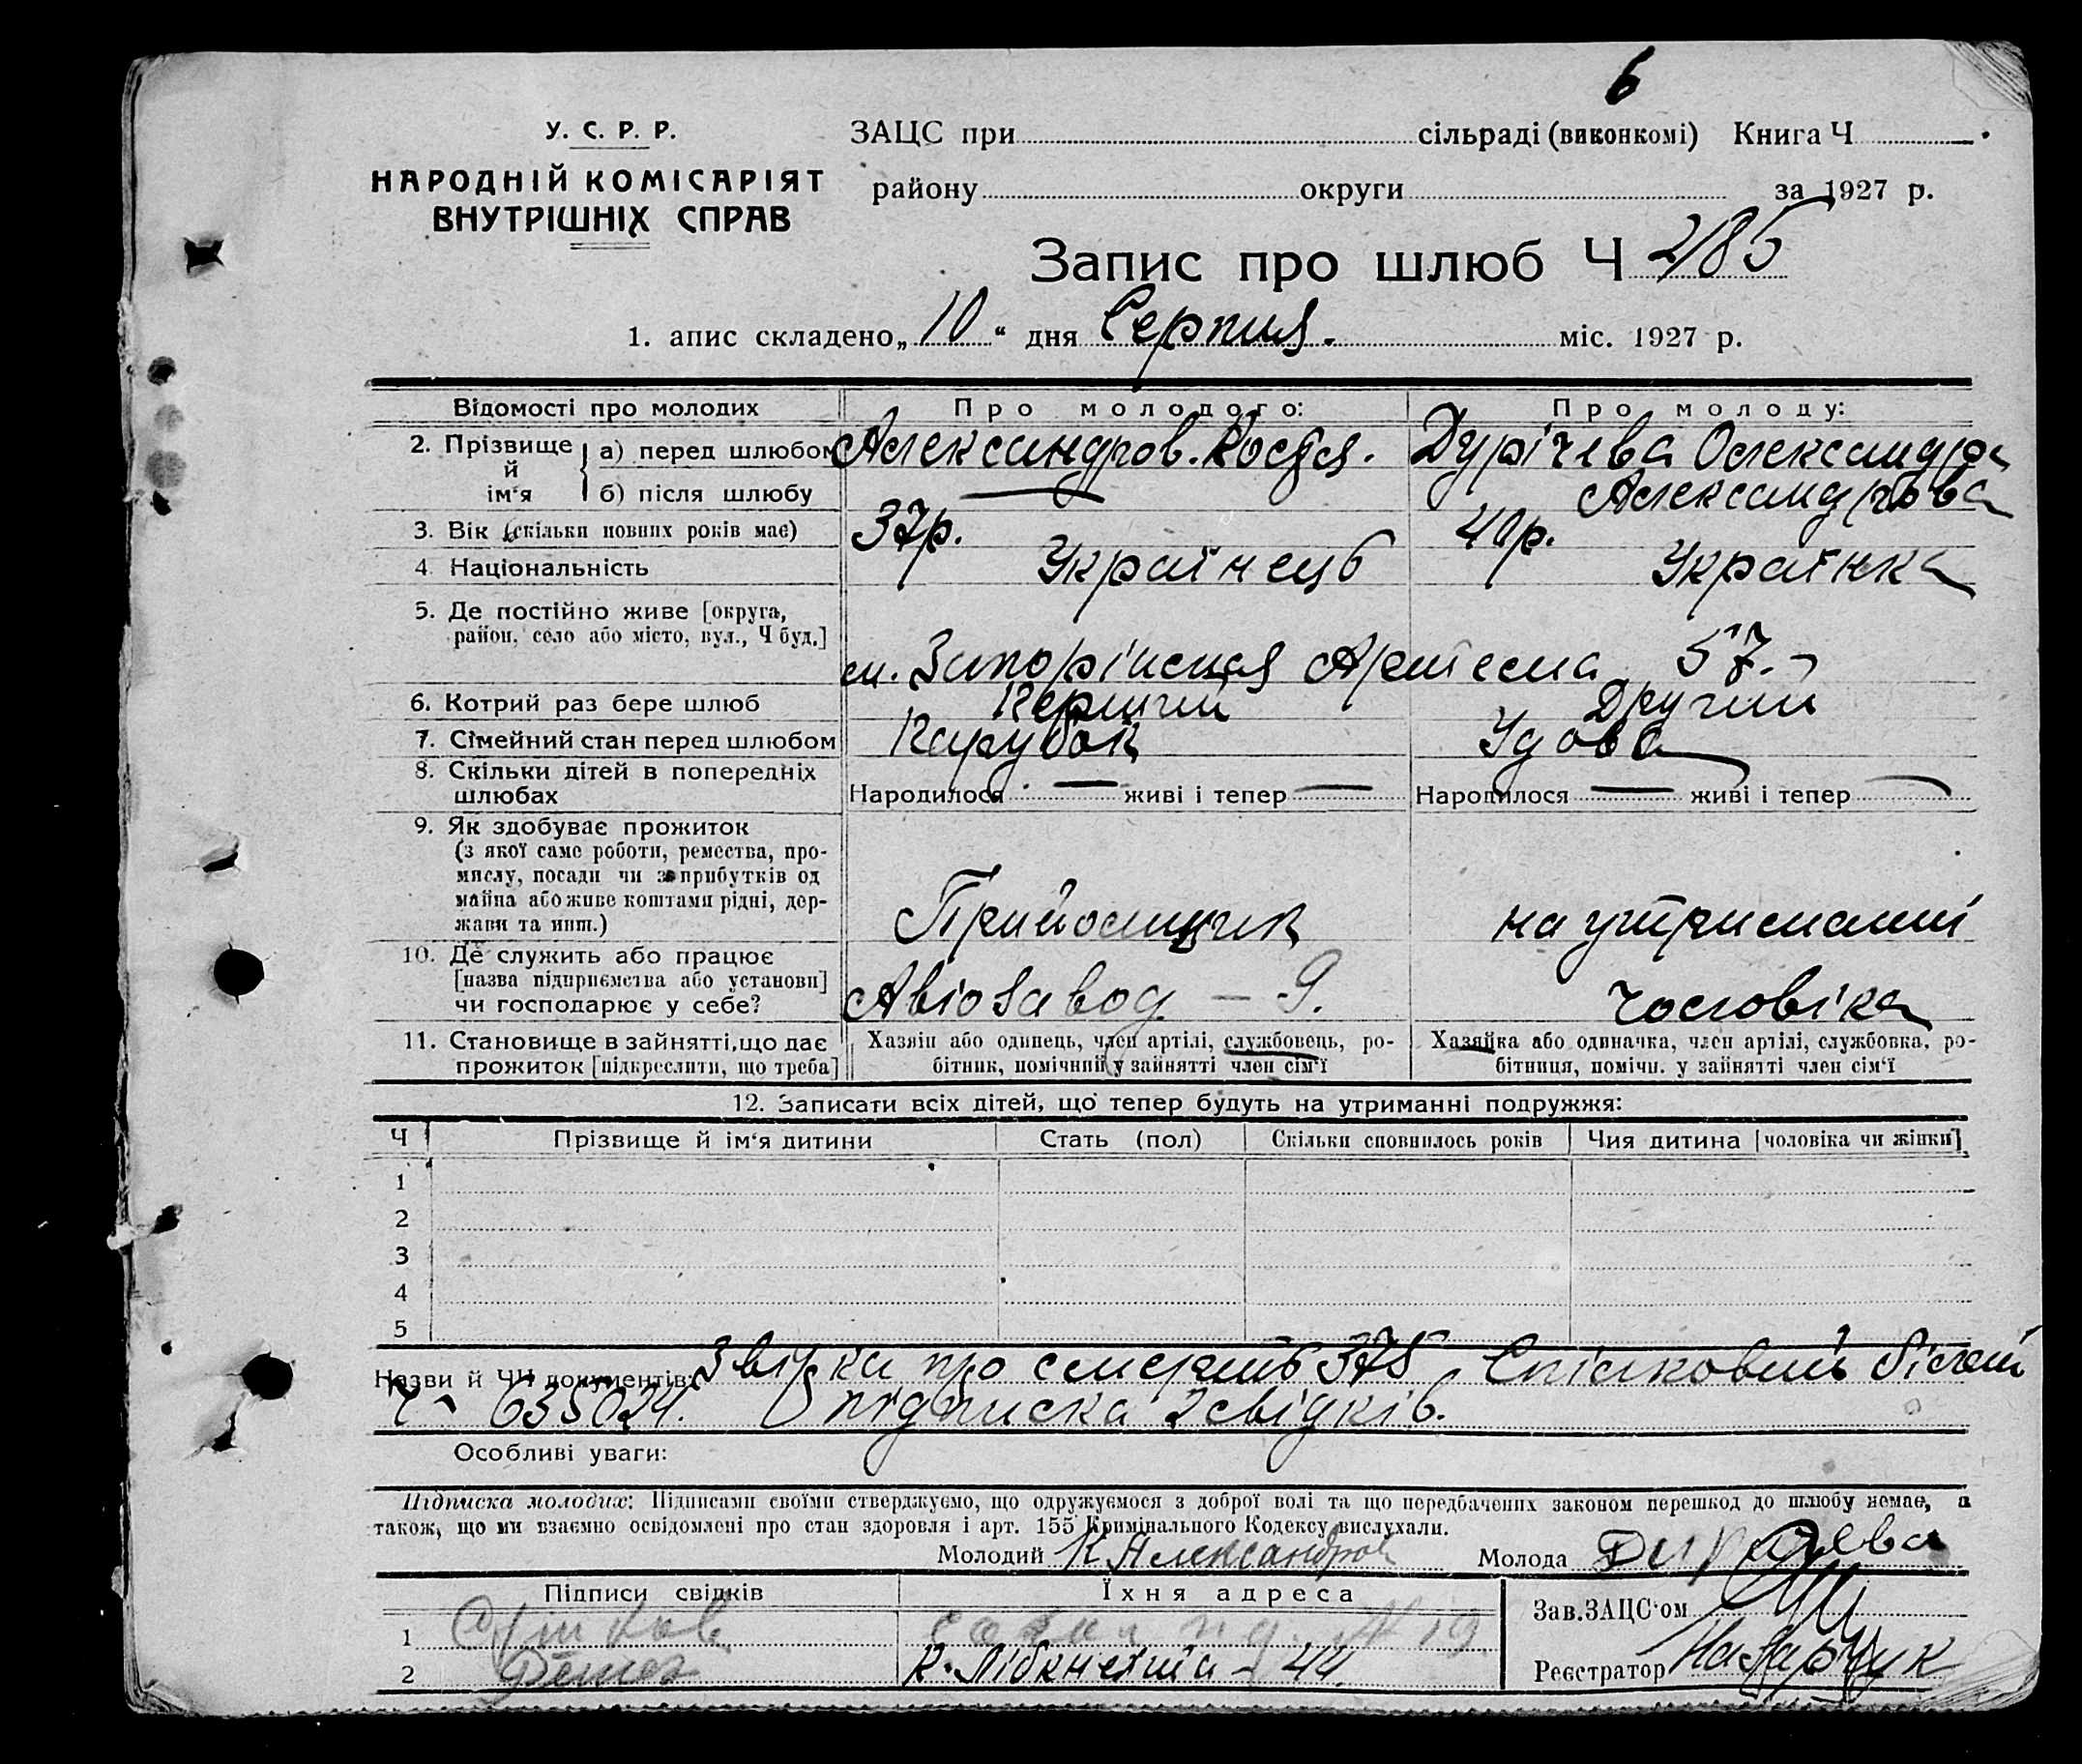 6
У. С. Р. Р.
НАРОДНІЙ КОМІСАРІЯТ
ВНУТРІШНІХ СПРАВ
ЗАЦС при сільраді (виконкомі) Книга Ч
району округи за 1927 р.
Запис про шлюб Ч 2/85
1. апис складено „ 10 “ дня Серпня. міс. 1927 р.
Відомості про молодих Про молодого: Про молоду:
2. Прізвище й ім‘я а) перед шлюбом Александров. Костя. Дурічева Олександра
б) після шлюбу Александрова
3. Вік (скільки повних років має) 37р. 40р.
4. Національність Українець Українка
5. Де постійно живе [округа,
район, село або місто, вул., Ч буд.]
м. Запоріжжя Артема 57.
6. Котрий раз бере шлюб Перший Другий
7. Сімейний стан перед шлюбом Парубок Удова
8. Скільки дітей в попередніх
шлюбах Народилося — живі і тепер — Народилося — живі і тепер —
9. Як здобуває прожиток
(з якої саме роботи, ремества, про-
мислу, посади чи з прибутків од
майна або живе коштами рідні, дер-
жави та инш.) Прийомщик на утриманні
10. Де служить або працює
[назва підприємства або установи]
чи господарює у себе? Авіозавод — 9. чоловіка
11. Становище в зайнятті, що дає
прожиток [підкреслити, що треба]
Хазяїн або одинець, член артілі, службовець, ро-
бітник, помічний у зайнятті член сім‘ї
Хазяйка або одиначка, член артілі, службовка, ро-
бітниця, помічн. у зайнятті член сім‘ї
12. Записати всіх дітей, що тепер будуть на утриманні подружжя:
Ч Прізвище й ім‘я дитини Стать (пол) Скільки сповнилось років Чия дитина [чоловіка чи жінки]
1
2
3
4
5
Назви й ЧЧ документів: Звірка про смерть 375, Спілковий білет
Ч 635024. підписка 2 свідків.
Особливі уваги:
Підписка молодих: Підписами своїми стверджуємо, що одружуємося з доброї волі та що передбачених законом перешкод до шлюбу немає, а
також, що ми взаємно освідомлені про стан здоровля і арт. 155 Кримінального Кодексу вислухали.
Молодий К Александров Молода
Підписи свідків Їхня адреса
Зав. ЗАЦС‘ом
1
2 К. Лібкнехта – 44
Реєстратор Назарчук